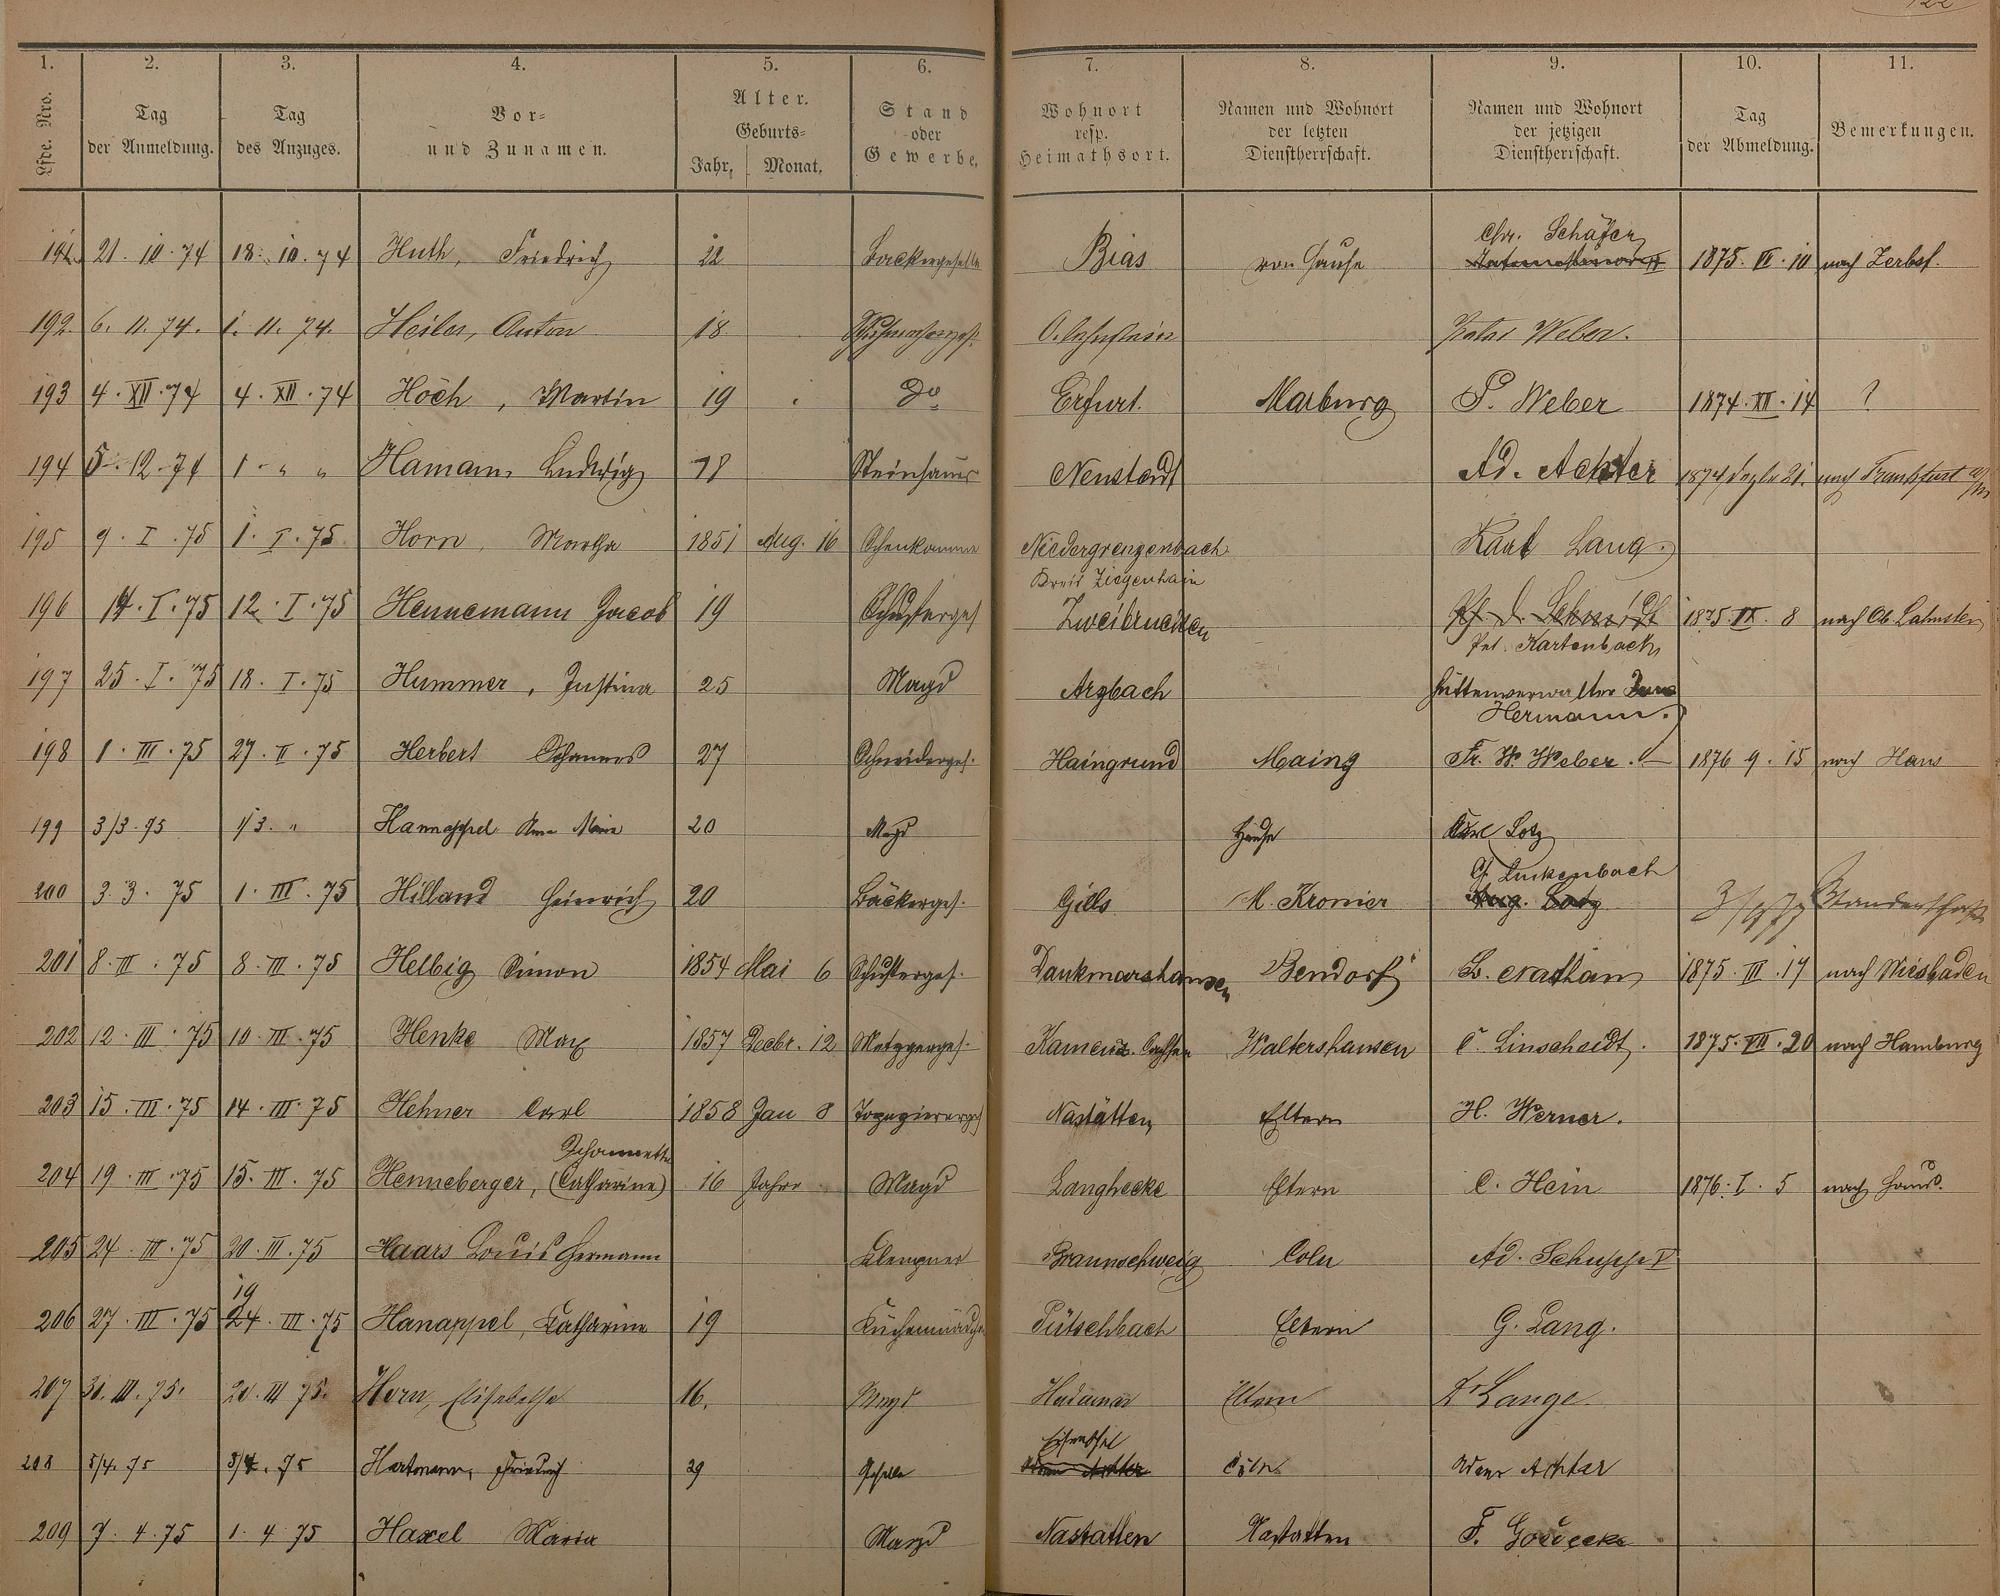 122
1. 2. 3. 4. 5. 6. 7. 8. 9. 10. 11.
Lfde. Nro. Tag der Anmeldung. Tag des Anzuges. Vor- und Zunamen. Alter. Geburts- Jahr, Monat. Stand oder Gewerbe. Wohnort resp. Heimathsort. Namen und Wohnort der letzten Dienstherrschaft. Namen und Wohnort der jetzigen Dienstherrschaft. Tag der Abmeldung. Bemerkungen.
Chr. Schäfer
191. 21. 10. 74 18. 10. 74 Huth, Friedrich 22 Backergeselle Bias von Hause 1875. VI. 10 nach Zerbst.
192. 6. 11. 74. 1. 11. 74. Heiler, Anton 18 O. Lahnstein Peter Weber.
193 4. XII. 74 4. XII. 74 Höch, Martin 19 do Erfurt. Marburg P. Weber 1874. XII. 14 ?
194 5. 12. 74 1. " " Hamann Ludwig 18 Steinhauer Neustadt Ad. Achter 1874 Dezbr 21. nach Frankfurt a/m
195 9. I. 75 1. I. 75 Horn, Martha 1851 Aug. 16 Niedergrenzenbach Karl Lang.
Kreis Ziegenhain
196 14. I. 75 12. I. 75 Hennemann Jacob 19 Schusterges Zweibruecken Schmidt 1875. IX. 8 nach Ob. Lahnstein
Pet. Kartenbach
197 25. I. 75 18. I. 75 Hummer, Justina 25 Magd Arzbach Hüttenverwalter
Hermann.
198 1. III. 75 27. II. 75 Herbert Johannes 27 Schneiderges. Haingrund Mainz Fr. W. Weber. 1876 9. 15 nach Haus
199 3/3. 75 1/3. " Hannappel Anna Maria 20 Magd Hause Karl Lotz
G. Luckenbach
200 3. 3. 75 1. III. 75 Hilland Heinrich 20 Bäckerges. Gills M. Kronier Aug. Lotz Wanderschaft
201 8. III. 75 8. III. 75 Helbig Simon 1854 Mai 6 Schusterges. Dankmarshausen Bendorf L. Nathan 1875. III. 17 nach Wiesbaden
202 12. III. 75 10. III. 75 Henke Max 1857 Decbr. 12 Metzgerges. Kamenz. Sachsen Waltershausen C. Linscheidt. 1875. VII. 20 nach Hamburg
203 15. III. 75 14. III. 75 Hehner Carl 1858 Jan 8 Tapezierergs Nastätten Eltern H. Werner.
Johannette
204 19. III. 75 15. III. 75 Henneberger, (Catharine) 16 Jahre Magd Langhecke Eltern C. Hein 1876. I. 5 nach Haus.
205 24. III. 75 20. III. 75 Haars Louis Hermann Klempner Braunschweig Coln Ad. Schupp V
19
206 27. III. 75 24. III. 75 Hanappel, Catharine 19 Küchenmädchen Pütschbach Eltern G. Lang.
207 31. III. 75. 20. III 75. Horn, Elisabetha 16. Magd Hadamar Eltern Dr Lange.
208 5/4. 75 3/4. 75 Hartmann, Friedrich 29 Geselle Adam Achter Cöln Adam Achter
209 7. 4. 75 1. 4 75 Haxel Maria Magd Nastatten Nastatten F. Goedecke